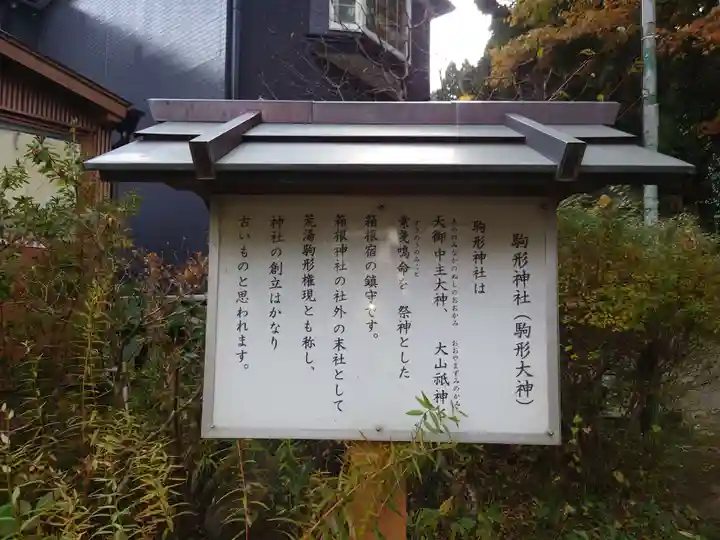 駒形神社(駒形大神)
駒形神社は
天御中主大神、 大山祇神
あめのみなかのぬしのおおかみ おおやまずみのかみ
素戔嗚命を 祭神とした
すさのうのみこと
箱根宿の鎮守です。
箱根神社の社外の末社として
荒湯駒形権現とも称し、
神社の創立はかなり
古いものと思われます。